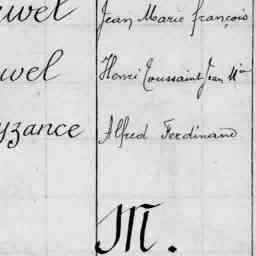 uwel Jean Marie françois
uwel Henri Toussaint Jean M<sup>ie</sup>
yzance Alfred Ferdinand
M.